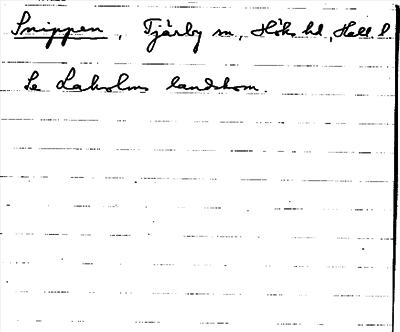 Snippen, Tjärby sn, Höks hd, Hall. l
Se Laholms landskom.